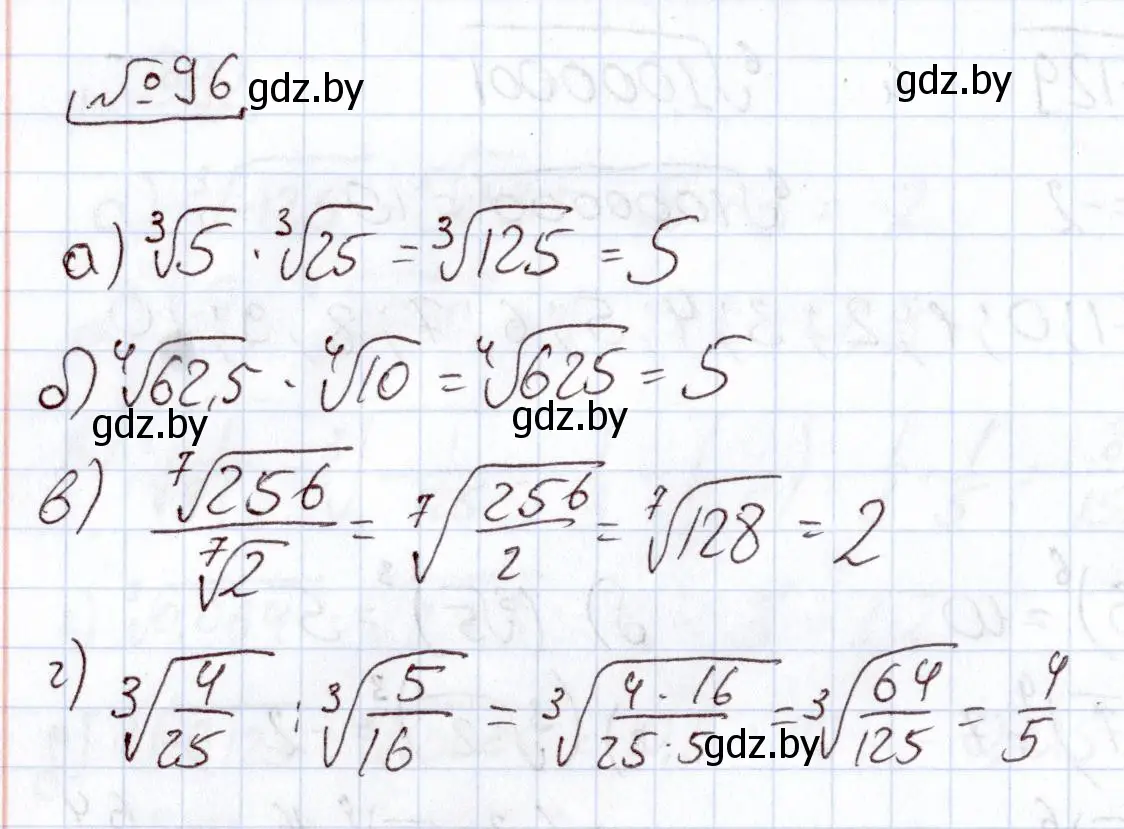 №96 gdz.by gdz.by
а) ∛5 · ∛25 = ∛125 = 5
б) ∜62,5 · ∜10 = ∜625 = 5
gdz.by gdz.by
в) ⁷√256 / ⁷√2 = ⁷√(256/2) = ⁷√128 = 2
г) ∛(4/25) : ∛(5/16) = ∛((4·16)/(25·5)) = ∛(64/125) = 4/5
gdz.by